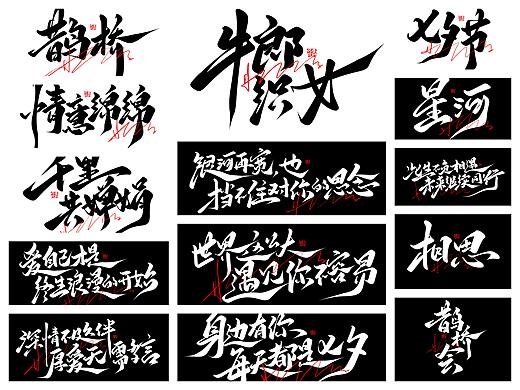 鹊桥
情意绵绵
千里
共婵娟
爱自己才是
终生浪漫的开始
深情不及久伴
厚爱无需多言
牛郎
织女
银河再宽,也
挡不住对你的思念
世界这么大
遇见你不容易
身边有你
每天都是七夕
七夕节
星河
此生不负相思
未来偕实同行
相思
鹊桥
会